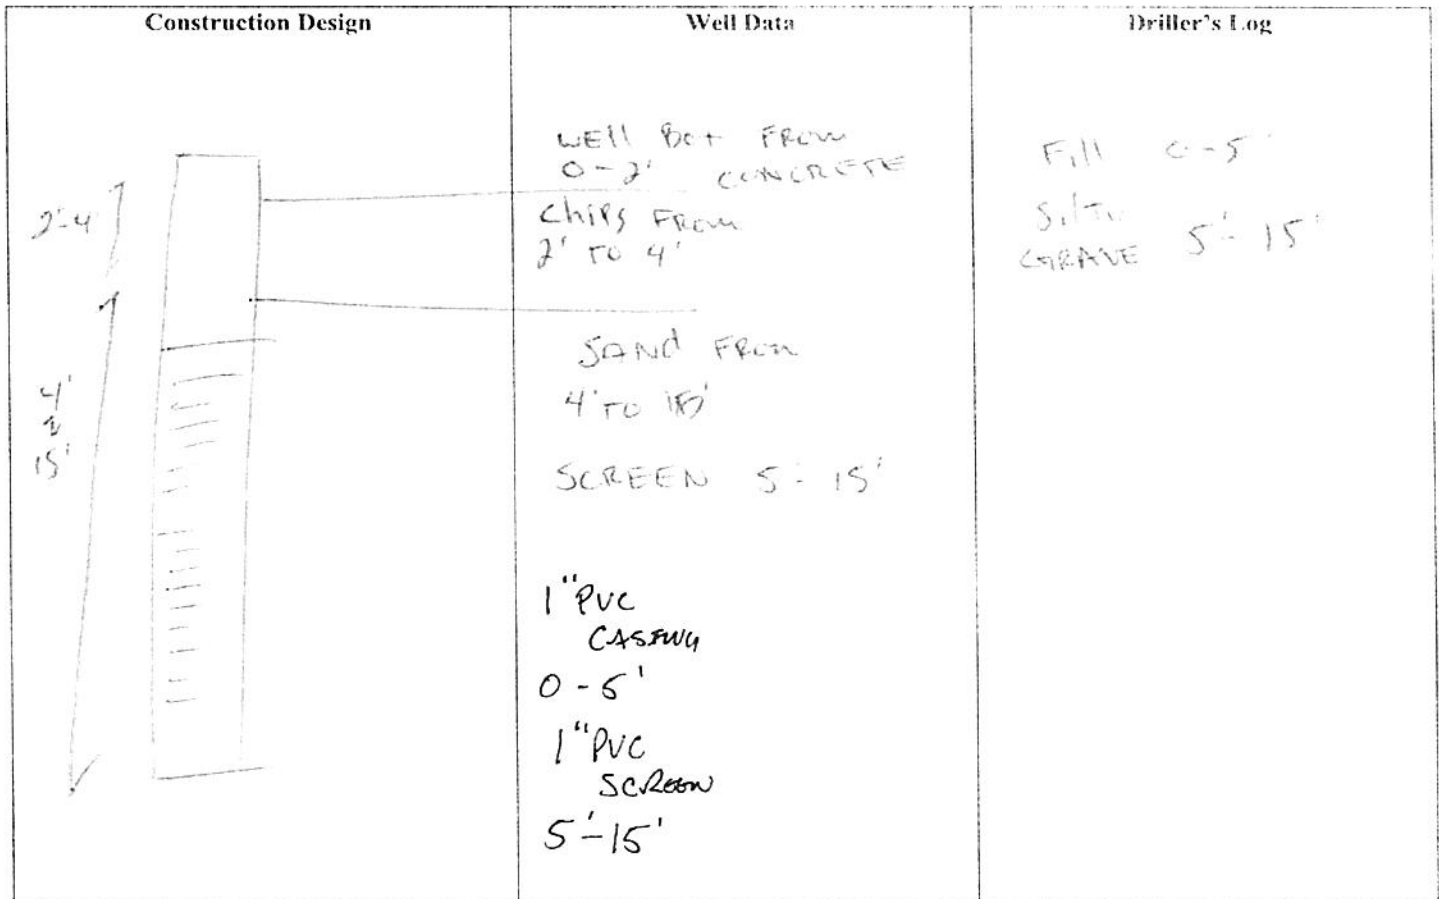 Construction Design
2'-4'
4'
15'
Well Data
WEll Box FROM
0-2' CONCRETE
Chips FROM
2' TO 4'
SAND FROM
4' TO 15'
SCREEN 5'-15'
1" PVC
CASING
0-5'
1" PVC
SCREEN
5'-15'
Driller's Log
Fill 0-5'
GRAVE 5'-15'